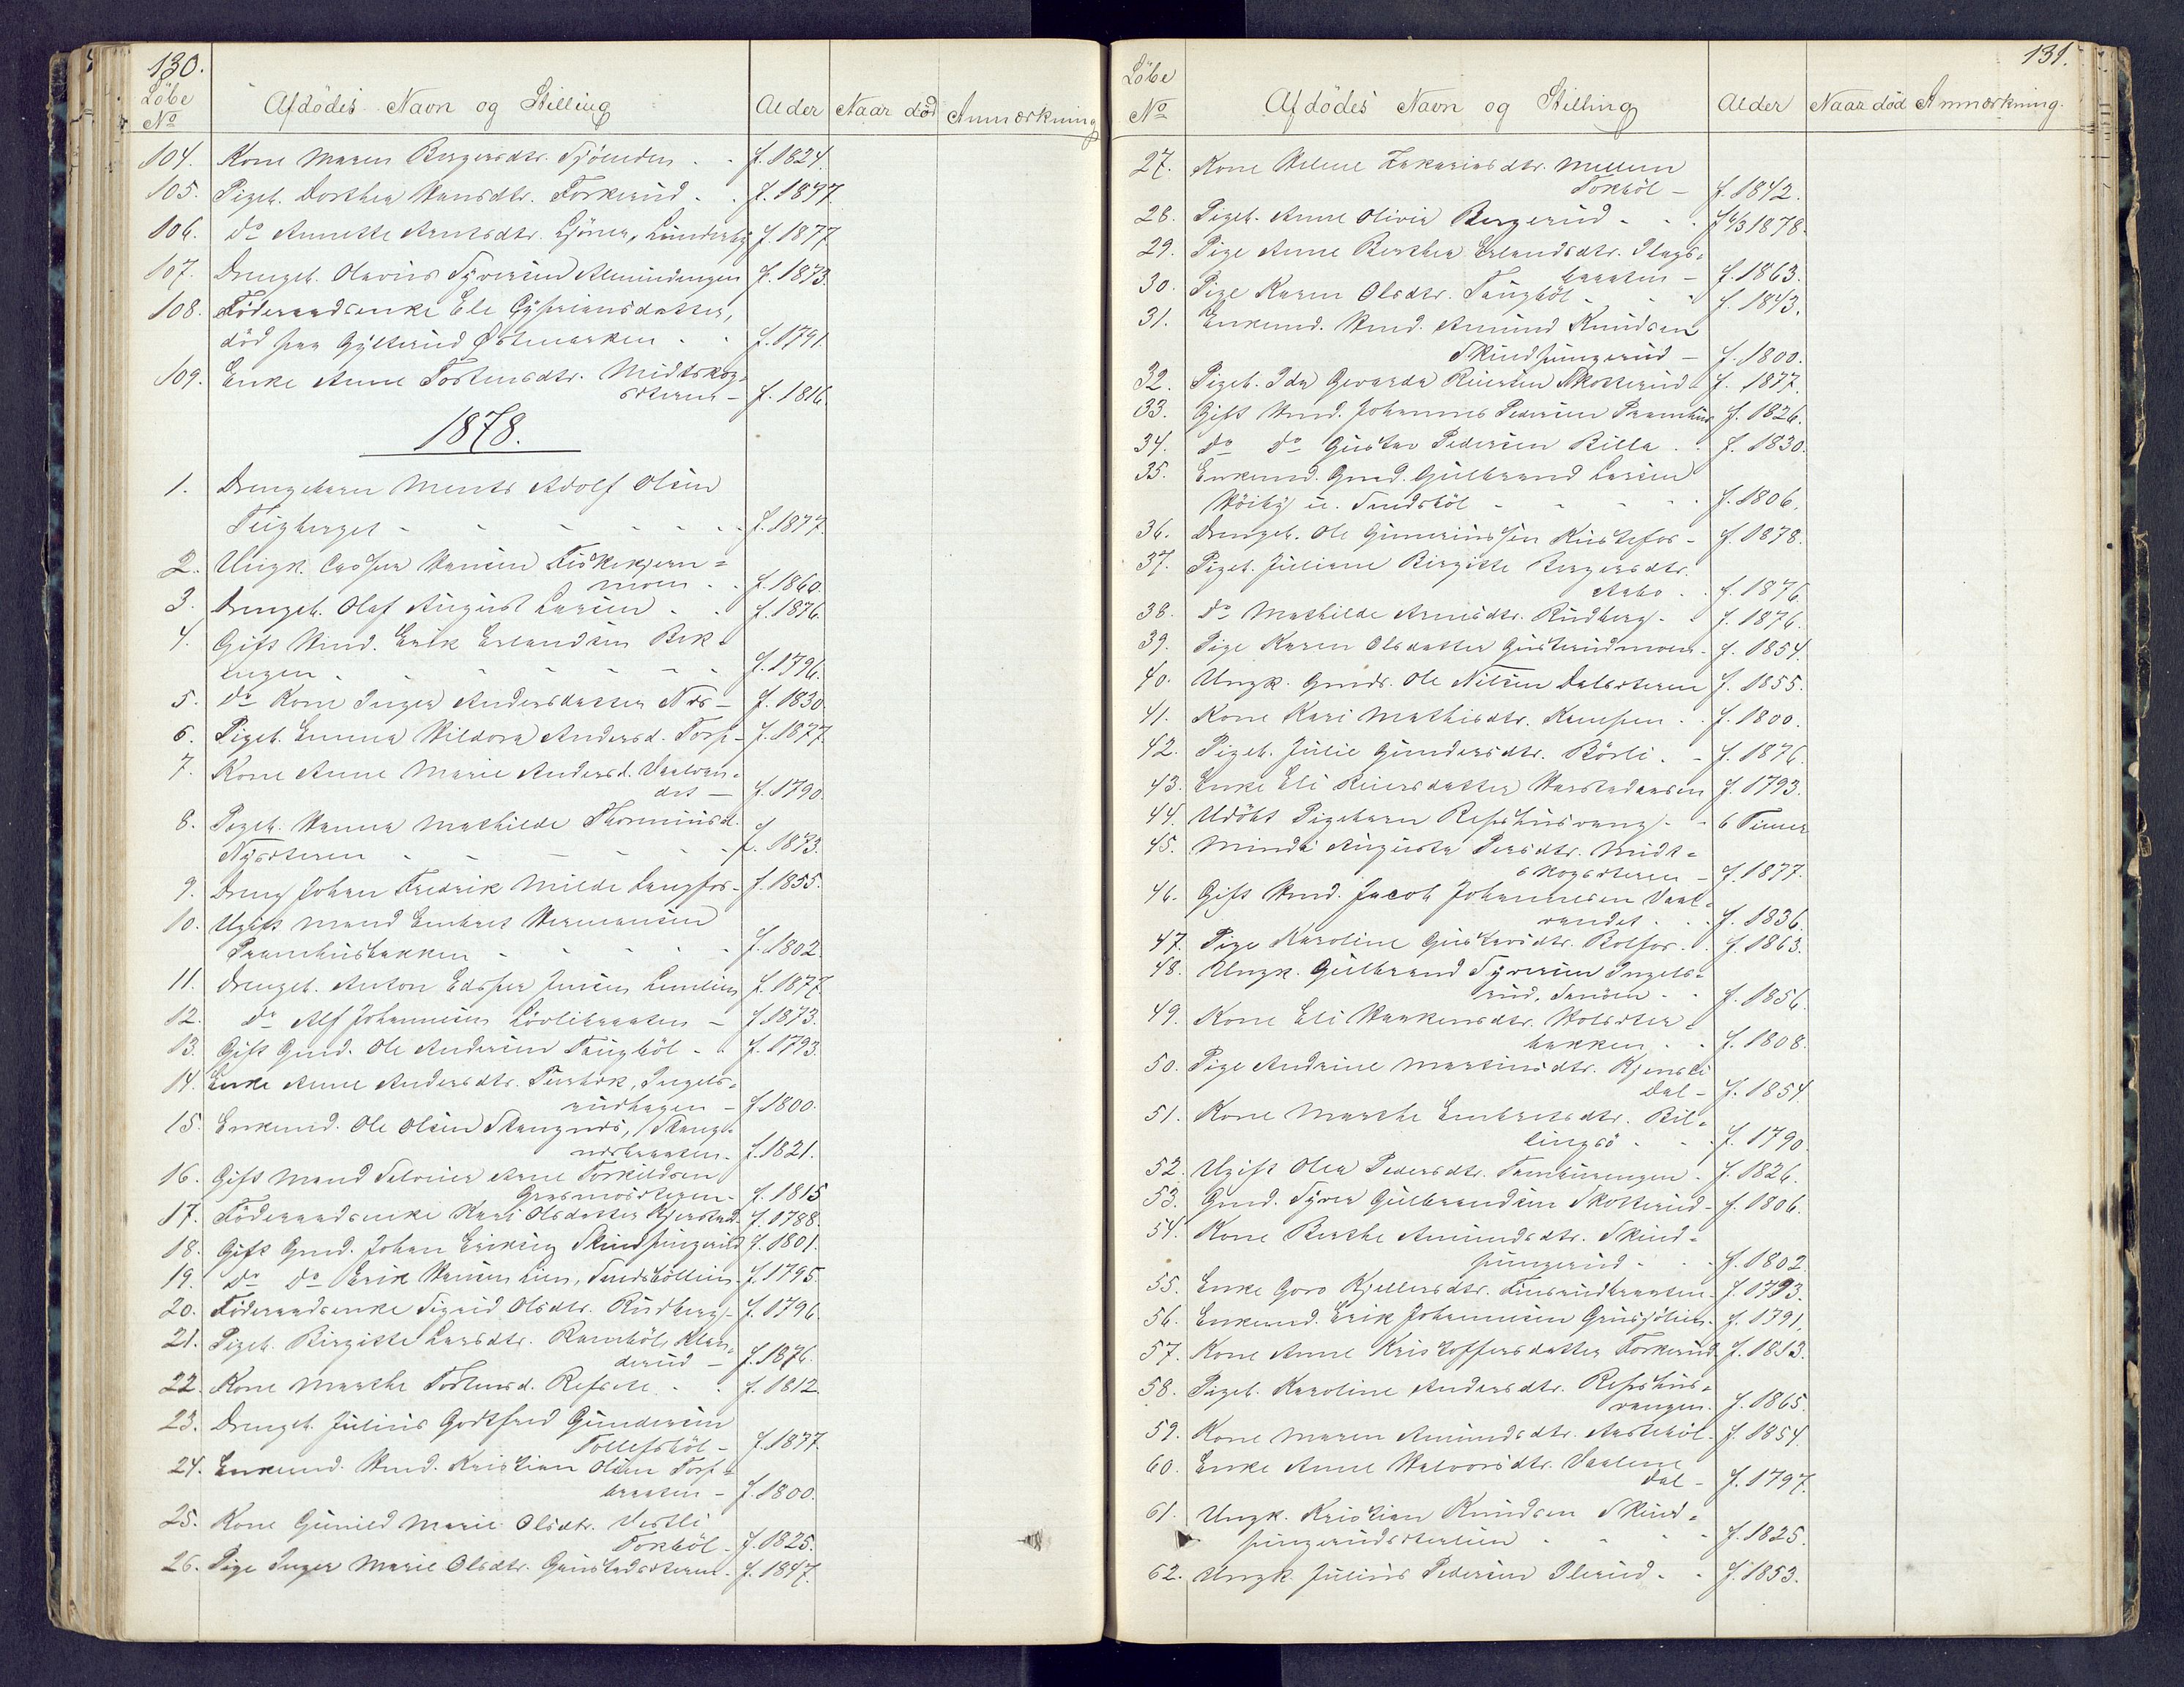 130.
Løbe
No Afdødes Navn og Stilling Alder Naar død Anmærkning
104. Kone Maren Bergersdtr. Sjøenden - f. 1824.
105. Pigeb. Dorthea Hansdtr. Torkerud - f. 1877.
106. do Annette Arntsdtr. Lunderby f. 1877
107. Drengeb. Olavus Syversen Almindingen f. 1873.
108. Føderaadsenke Eli Cypriansdatter,
død paa Gylterud Østmarken - f. 1791.
109. Enke Anne Torstensdtr. Midtskog-
sæteren - f. 1816.
1878.
1. Drengebarn Ments Adolf Olsen
Teigberget - f. 1877.
2. Ungk. Casper Hansen Fiskekjern=
moen - f. 1860.
3. Drengeb. Olaf August Larsen - f. 1876.
4. Gift Hmd. Erik Erlandsen Bek=
engen - f. 1796.
5. do Kone Inger Andersdatter Næs - f. 1830.
6. Pigeb. Emma Hildora Andersd. Torp - f. 1877.
7. Kone Anne Marie Andersd. Vaalran-
det - f. 1790.
8. Pigeb. Hanna Mathilde Thoreniusd.
Nysæteren - f. 1873.
9. Dreng Johan Fredrik Milde Langfos - f. 1855.
10. Ugift Mand Embret Hermansen
Praamhusbakken - f. 1802.
11. Drengeb. Anton Edsper Jensen f. 1877.
12. do Alf Johannesen Løvlibraaten - f. 1873.
13. Gift Gmd. Ole Andersen Taugbøl - f. 1793.
14. Enke Anne Andersdtr. Ingels-
rudhagen - f. 1800.
15. Enkemd. Ole Olsen Stangnæs, Stang-
næsbraaten - f. 1821.
16. Gift Mand Selveier Arne Torkildsen
Grasmosæteren - f. 1815
17. Føderaadsenke Kari Olsdatter Kjerstad - f. 1788.
18. Gift Gmd. Johan Eriksen Skindpungrud f. 1801.
19. do do Erik Hansen Lien, Sandsbøllien - f. 1795.
20. Føderaadsenke Sigrid Olsdtr. Rudberg - f. 1796.
21. Pigeb. Birgitte Larsdtr. Ramsbøl, Klan-
derud - f. 1876.
22. Kone Marthe Torstensd. Refsæte - f. 1812.
23. Drengeb. Julius Godtfred Gundersen
Tollefsbøl - f. 1877.
24. Enkemd. Hmd. Kristian Olsen Torp-
braaten - f. 1800.
25. Kone Gunild Marie Olsdtr. Vestli
Tokbøl - f. 1825.
26. Pige Inger Marie Olsdtr. Grinstadsæteren - f. 1847.
131.
Løbe
No Afdødes Navn og Stilling Alder Naar død Anmærkning.
27. Kone Helene Zakariasdtr. Mellem
Tokbøl - f. 1842.
28. Pigeb. Anne Olivia Bergerud - f 4/3 1878.
29. Pige Anne Berthea Erlandsdtr. Plags-
braaten - f. 1863.
30. Pige Karen Olsdtr. Taugbøl - f. 1843.
31. Enkemd. Hmd. Amund Knudsen
Skindpungerud - f. 1800.
32. Pigeb. Ida Gevarda Reiersen Skotterud - f. 1877.
33. Gift Hmd. Johannes Pedersen Praamhus f. 1826.
34. do do Gustav Pedersen Billa - f. 1830.
35. Enkemd. Gmd. Gulbrand Larsen
Høiby u. Sandsbøl - f. 1806.
36. Drengeb. Ole Gunerius sen Kustefos - f. 1878.
37. Pigeb. Juliane Birgitte Bergersdtr.
Aabo - f. 1876.
38. do Mathilde Arnesdtr. Rudberg - f. 1876.
39. Pige Karen Olsdatter Gusterudmoen - f. 1854.
40. Ungk. Gmds. Ole Nilsen Dalsæteren f. 1855.
41. Kone Kari Mathisdtr. Kampen - f. 1800.
42. Pigeb. Julie Gundersdtr. Børli - f. 1876.
43. Enke Eli Reiersdatter Harstadaasen f. 1793.
44. Udøbt Pigebarn Refshusvang - 6 Timer
45. Minda Augusta Persdtr. Midt-
skogsæteren - f. 1877.
46. Gift Hmd. Jacob Johannesen Vaal-
randet - f. 1836.
47. Pige Karoline Gustavsdtr. Bolfos - f. 1863.
48. Ungk. Gulbrand Syversen Ingels-
rud, Sanden - f. 1856.
49. Kone Eli Haakensdtr. Holsæter-
bakken - f. 1808.
50. Pige Andrine Martinsdtr.
dal - f. 1854.
51. Kone Marthe Embretsdtr. Bil-
lingsø - f. 1790.
52. Ugift Olea Pedersdtr. Tamburengen - f. 1826.
53. Gmd. Syver Gulbrandsen Skotterud - f. 1806.
54. Kone Berthe Amundsdtr. Skind-
pungerud - f. 1802.
55. Enke Goro Kjellersdtr. Finsrudbraaten - f. 1793.
56. Enkemd. Erik Johannesen Grusjølien - f. 1791.
57. Kone Anne Kristoffersdatter Torkerud f. 1813.
58. Pigeb. Karoline Andersdtr. Refshus-
vangen - f. 1865.
59. Kone Maren Amundsdtr. Aastebøl - f. 1854.
60. Enke Anne Halvorsdtr. Vaalene
dal - f. 1797.
61. Ungk. Kristian Knudsen Skind-
pungerudsæterlien - f. 1825.
62. Ungk. Julius Pedersen Olerud - f. 1853.